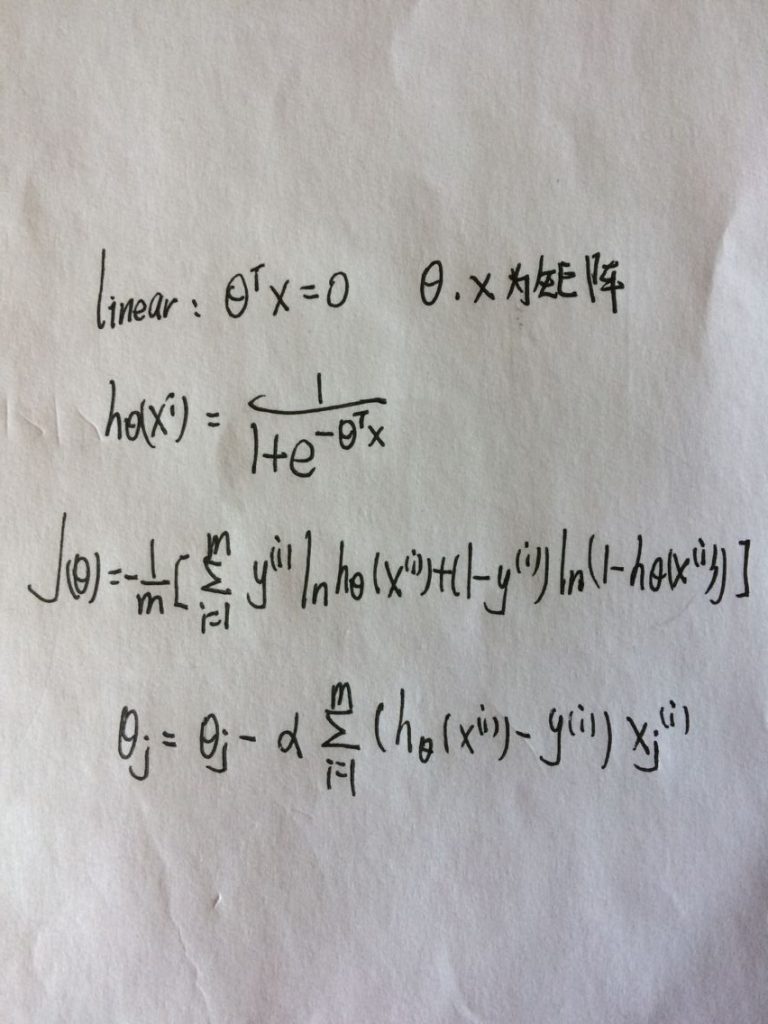 linear: θᵀx=0 θ.x为矩阵
hθ(xⁱ) = 1/(1+e^(-θᵀx))
J(θ)=-1/m[∑_{i=1}^{m} y⁽ⁱ⁾ln hθ(x⁽ⁱ⁾)+(1-y⁽ⁱ⁾)ln(1-hθ(x⁽ⁱ⁾))]
θj = θj - α ∑_{i=1}^{m} (hθ(x⁽ⁱ⁾)-y⁽ⁱ⁾) xj⁽ⁱ⁾